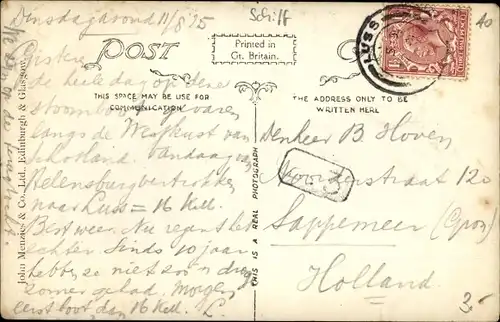 Dinsdagavond 11/8 '25
Schiff
40
POST
C
Printed in
Gt. Britain.
LUSS
THIS SPACE MAY BE USE FOR
COMMUNICATION.
THE ADDRESS ONLY TO BE
WRITTEN HERE
de heele dag op deze
stoomboot gevaren
langs de Westkust van
Schotland. Vandaag van
Helensburg vertrokken
naar Luss = 16 Kell.
Best weer. Nu regent het
echter. Sinds 10 jaar
hebben ze niet zoo'n droge
zomer gehad. Morgen
eerst boot, dan 16 Kell. L.
John Menzies & Co., Ltd., Edinburgh & Glasgow.
THIS IS A REAL PHOTOGRAPH
Denheer B Hoven
Noorderstraat 120
Sappemeer (Gron)
Holland
3-